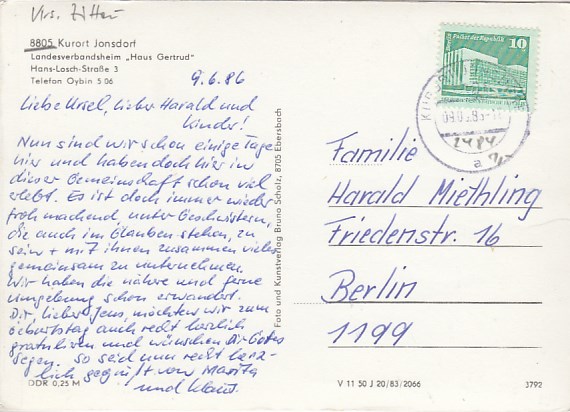 Krs. Zittau
8805 Kurort Jonsdorf
Landesverbandsheim „Haus Gertrud"
Hans-Losch-Straße 3
Telefon Oybin 5 06
9.6.86
Liebe Ursel, lieber Harald und
Kinder!
Nun sind wir schon einige Tage
hier und haben doch hier in
dieser Gemeinschaft schon viel
erlebt. Es ist doch immer wieder
froh machend, unter Geschwistern,
die auch im Glauben stehen, zu
sein + mit ihnen zusammen vieles
gemeinsam zu unternehmen.
Wir haben die nähere und ferne
Umgebung schon erwandert.
Dir, lieber Jens, möchten wir zum
Geburtstag auch recht herzlich
gratulieren und wünschen Dir Gottes
Segen. So seid nun recht herz-
lich gegrüßt von Marita
und Klaus.
DDR 0,25 M
Foto und Kunstverlag Bruno Scholz, 8705 Ebersbach
Palast der Republik
10
a
Familie
Harald Miethling
Friedenstr. 16
Berlin
1199
V 11 50 J 20/83/2066
3792